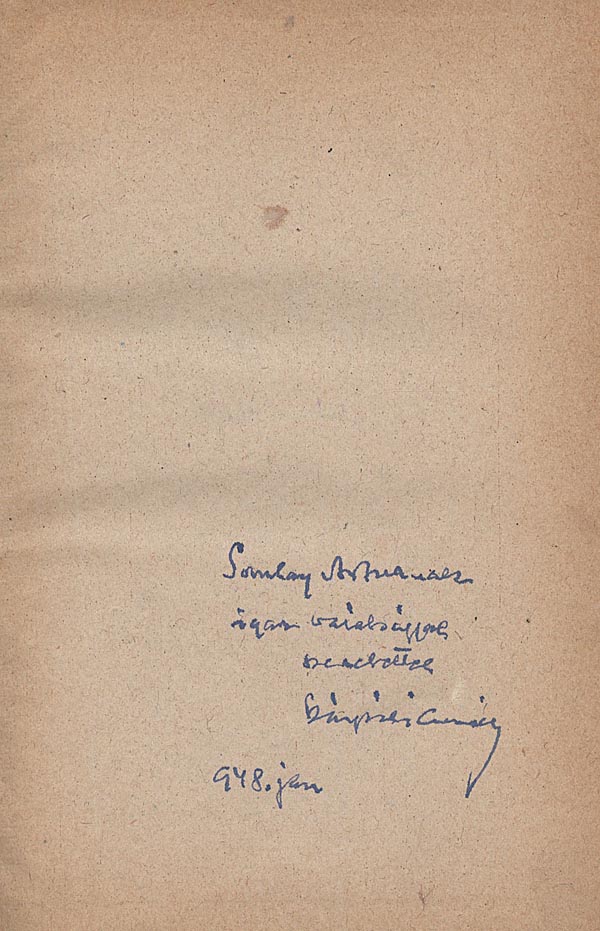 Somlay Arturnak
igaz barátsággal
szeretettel
948. jan